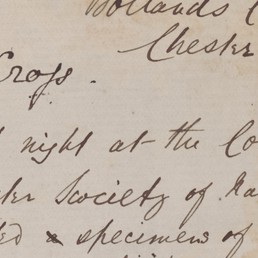 Bollands C
Chester
Cross.
night at the Co
ter Society of Na
ed a specimens of